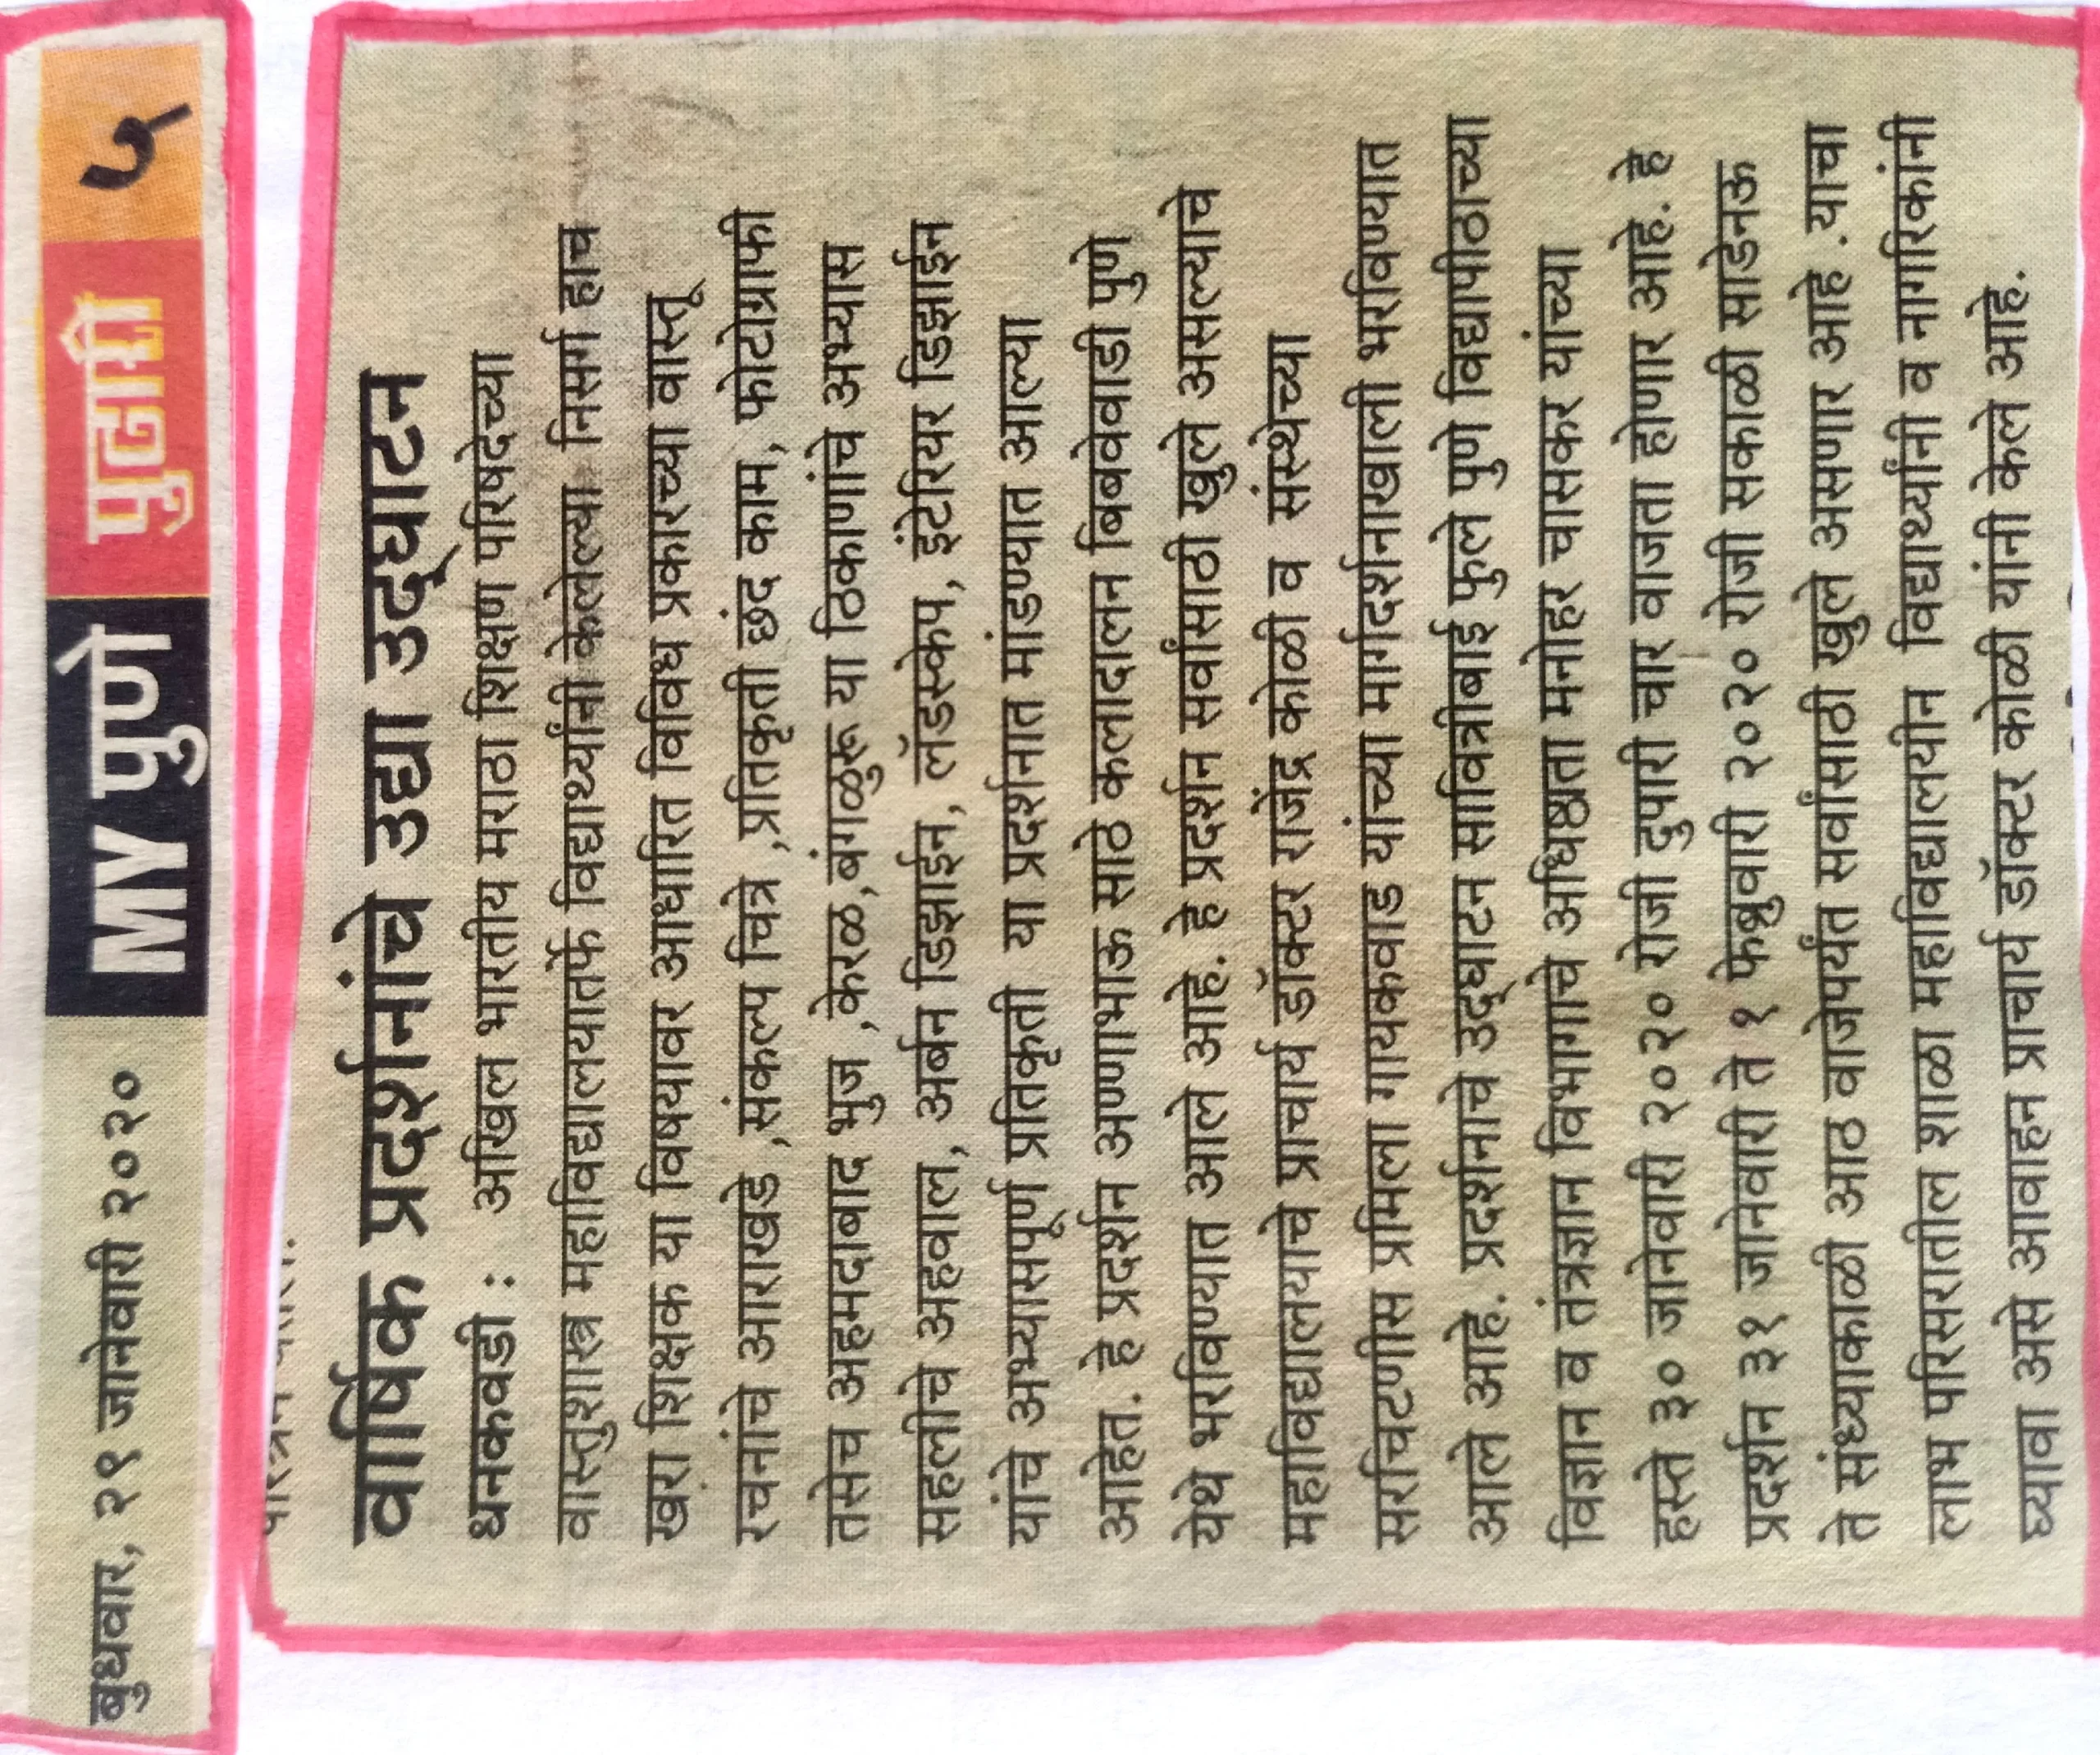 बुधवार, २९ जानेवारी २०२० MY पुणे पुढारी ५
वार्षिक प्रदर्शनांचे उद्या उद्घाटन
धनकवडी : अखिल भारतीय मराठा शिक्षण परिषदेच्या
वास्तुशास्त्र महाविद्यालयातर्फे विद्यार्थ्यांनी केलेल्या निसर्ग हाच
खरा शिक्षक या विषयावर आधारित विविध प्रकारच्या वास्तू
रचनांचे आराखडे ,संकल्प चित्रे ,प्रतिकृती छंद काम, फोटोग्राफी
तसेच अहमदाबाद भुज ,केरळ,बंगळुरू या ठिकाणांचे अभ्यास
सहलीचे अहवाल, अर्बन डिझाईन, लॅंडस्केप, इंटेरियर डिझाईन
यांचे अभ्यासपूर्ण प्रतिकृती या प्रदर्शनात मांडण्यात आल्या
आहेत. हे प्रदर्शन अण्णाभाऊ साठे कलादालन बिबवेवाडी पुणे
येथे भरविण्यात आले आहे. हे प्रदर्शन सर्वांसाठी खुले असल्याचे
महाविद्यालयाचे प्राचार्य डॉक्टर राजेंद्र कोळी व संस्थेच्या
सरचिटणीस प्रमिला गायकवाड यांच्या मार्गदर्शनाखाली भरविण्यात
आले आहे. प्रदर्शनाचे उद्घाटन सावित्रीबाई फुले पुणे विद्यापीठाच्या
विज्ञान व तंत्रज्ञान विभागाचे अधिष्ठाता मनोहर चासकर यांच्या
हस्ते ३० जानेवारी २०२० रोजी दुपारी चार वाजता होणार आहे. हे
प्रदर्शन ३१ जानेवारी ते १ फेब्रुवारी २०२० रोजी सकाळी साडेनऊ
ते संध्याकाळी आठ वाजेपर्यंत सर्वांसाठी खुले असणार आहे .याचा
लाभ परिसरातील शाळा महाविद्यालयीन विद्यार्थ्यांनी व नागरिकांनी
घ्यावा असे आवाहन प्राचार्य डॉक्टर कोळी यांनी केले आहे.